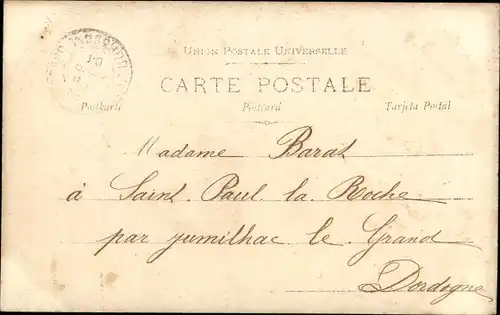 UNION POSTALE UNIVERSELLE
CARTE POSTALE
Postkarte Postcard Tarjeta Postal
Madame Barat
à Saint Paul la Roche
par jumilhac le Grand
Dordogne